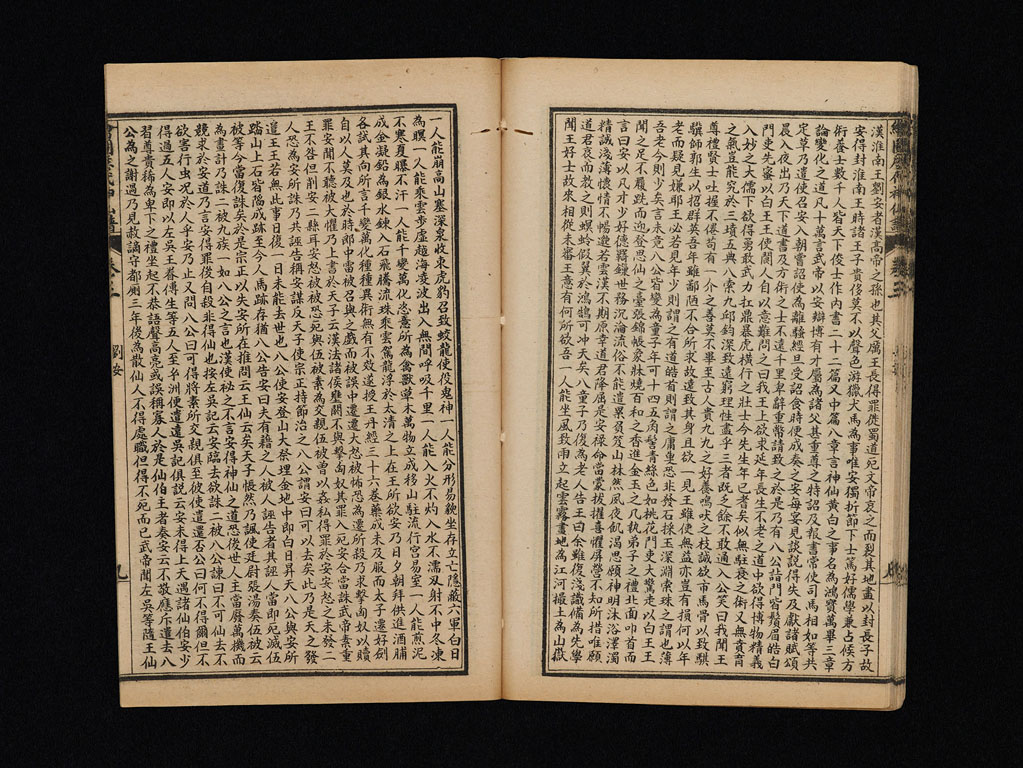 漢淮南王劉安者漢高帝之孫也其父厲王長得罪徙蜀道死文帝哀之而裂其地盡以封長子故
安得封淮南王時諸王子貴侈莫不以聲色游獵犬馬為事唯安獨折節下士篤好儒學兼占候方
術養士數千人皆天下俊士作內書二十二篇又中篇八章言神仙黃白之事名為鴻寶萬畢三章
論變化之道凡十萬言武帝以安辯博有才屬為諸父甚重尊之特詔及報書常使司馬相如等共
定草乃遣使召安入朝嘗詔使為離騷經旦受詔食時便成奏之安每宴見談說得失及獻諸賦頌
晨入夜出乃天下道書及方術之士不遠千里卑辭重幣請致之於是乃有八公詣門皆鬚眉皓白
門吏先密以白王王使閽人自以意難問之曰我王上欲求延年長生不老之道中欲得博物精義
入妙之大儒下欲得勇敢武力扛鼎暴虎橫行之壯士今先生年已耆矣似無駐衰之術又無賁育
之氣豈能究於三墳五典八索九邱鉤深致遠窮理盡性乎三者既乏餘不敢通八公笑曰我聞王
尊禮賢士吐握不倦苟有一介之善莫不畢至古人貴九九之好養鳴吠之技誠欲市馬骨以致騏
驥師郭生以招群英吾年雖鄙陋不合所求故遠致其身且欲一見王雖使無益亦豈有損何以年
老而疑見嫌耶王必若見年少則謂之有道皓首則謂之庸叟恐非發石採玉深淵索珠之謂也薄
吾老今則少矣言未竟八公皆變為童子年可十四五角髻青絲色如桃花門吏大驚走以白王王
聞之足不履跣而迎登思仙之臺張錦帳象牀燒百和之香進金玉之几執弟子之禮北面叩首而
言曰安以凡才少好道德羈鎖世務沉淪流俗不能遺累負笈山林然夙夜飢渴思願神明沐浴滓濁
精誠淺薄懷情不暢邈若雲漢不期厚幸道君降屈是安祿命當蒙拔擢喜懼屏營不知所措唯願
道君哀而教之則螟蛉假翼於鴻鵠可沖天矣八童子乃復為老人告王曰余雖復淺識備為先學
聞王好士故來相從未審王意有何所欲吾一人能坐風致雨立起雲霧畫地為江河撮土為山嶽
一人能崩高山塞深泉收束虎豹召致蛟龍使役鬼神一人能分形易貌坐存立亡隱蔽六軍白日
為瞑一人能乘雲步虛越海凌波出入無間呼吸千里一人能入火不灼入水不濡刃射不中冬凍
不寒夏曝不汗一人能千變萬化恣意所為禽獸草木萬物立成移山駐流行易室一人能煎泥
成金凝鉛為銀水鍊入石飛騰流珠乘雲駕龍浮於太清之上在王所欲安乃日夕朝拜供進酒脯
各試其向所言千變萬化種種異術無有不效遂授玉丹經三十六卷藥成未及服而太子遷好劍
自以人莫及也於時郎中雷被召與之戲而被誤中遷大怒被怖恐為遷所殺乃求擊匈奴以贖
罪安聞不聽被大懼乃上書於天子云漢法諸侯壅閼不與擊匈奴其罪入死安合當誅武帝素重
王不咎但削安二縣耳安怒被被恐死與伍被素為交親伍被曾以姦私得罪於安安怒之未發二
人恐為安所誅乃共誣告稱安謀反天子使宗正持節治之八公謂安曰可以去矣此乃是天之發
遣王王若無此事日復一日未能去世也八公使安登山大祭埋金地中即白日昇天八公與安所
踏山上石皆陷成跡至今人馬跡存猶八公告安曰夫有籍之人被人誣告者其誣人當即死滅伍
被等今當復誅矣於是宗正以失安所在推問云王仙去矣天子悵然乃諷使廷尉張湯奏伍被云
為畫計乃誅二被九族一如八公之言也漢使秘之不言安得神仙之道恐後世人主當廢萬機而
競求於安道乃言安得罪後自殺非得仙也按左吳記云安臨去欲誅二被八公諫曰不可仙去不
欲害行虫况於人乎安乃止又問八公曰可得將素所交親俱至彼便遣還否公曰何不得爾但不
得過五人安即以左吳王眷傅生等五人至玄洲便遣還吳記俱說云安未得上天遇諸仙伯安少
習尊貴稀為卑下之禮坐起不恭語聲高亮或誤稱寡人於是仙伯主者奏安云不敬應斥遣去八
公為之謝過乃見赦謫守都廁三年後為散仙人不得處職但得不死而已武帝聞左吳等隨王仙
卷之二
劉安
九